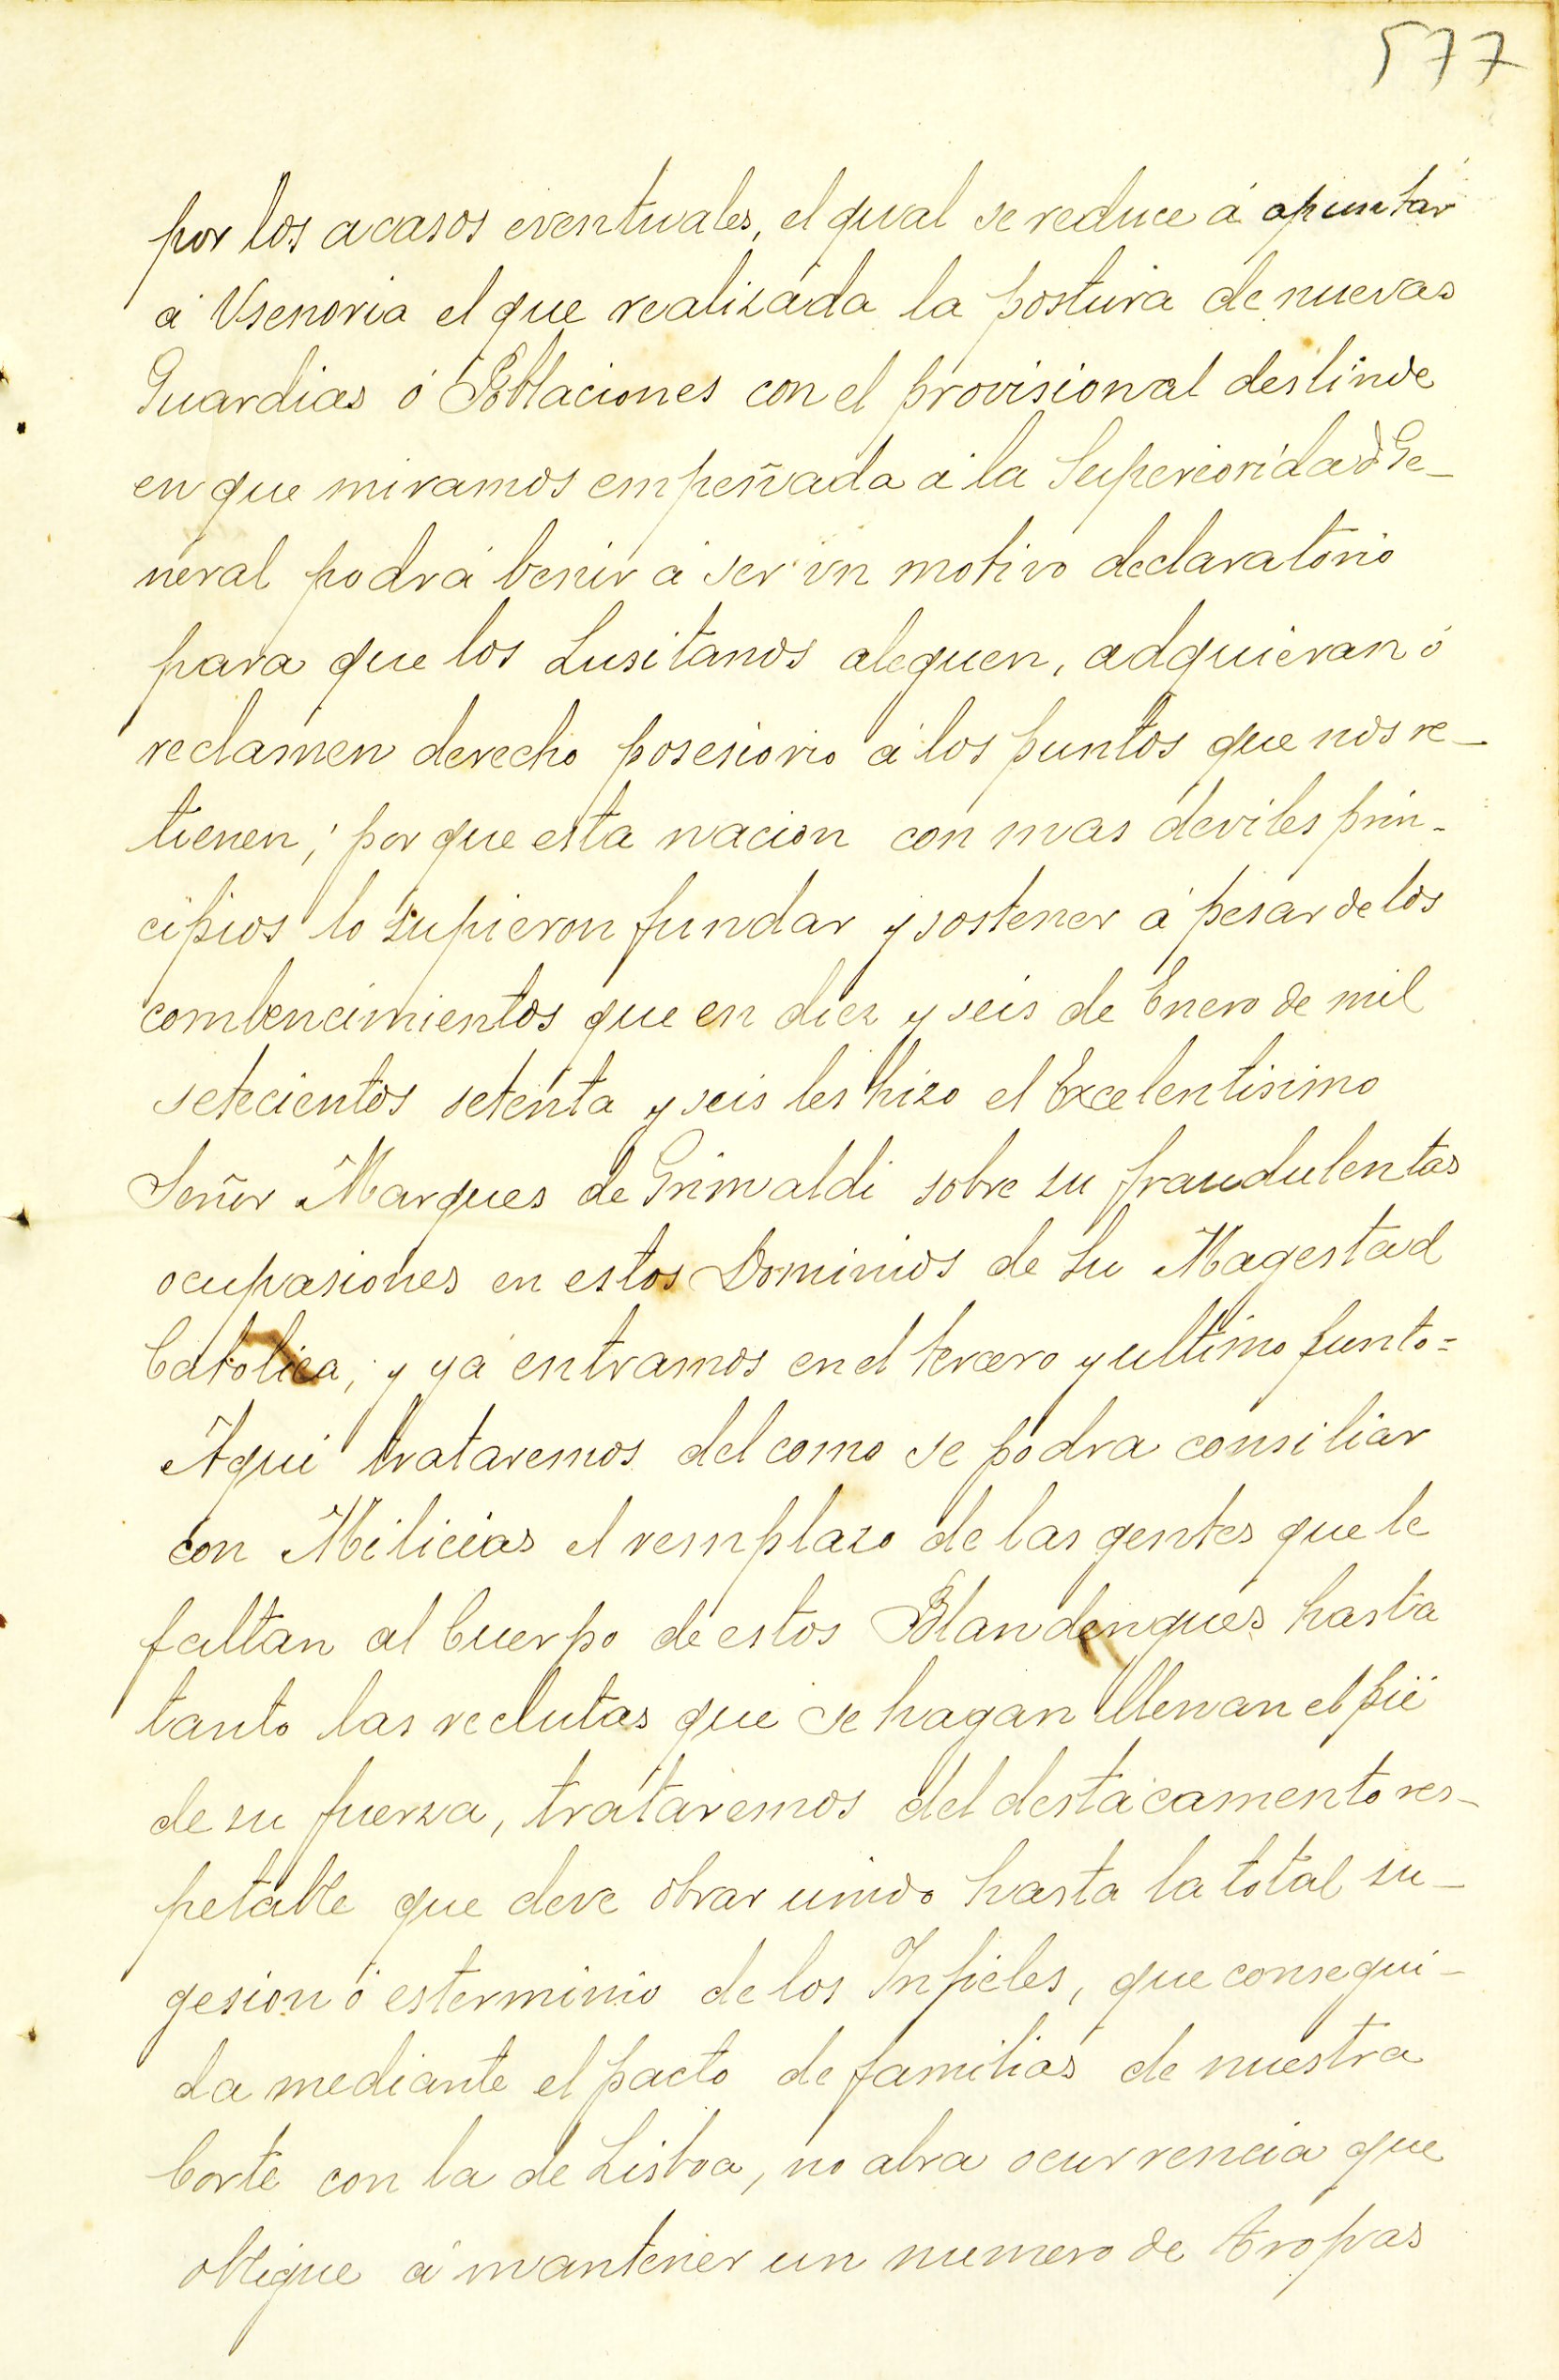 577
por los acasos eventuales, el qual se reduce á apuntar
á Vsenoria el que realizada la postura de nuevas
Guardias ó Poblaciones con el provisional deslinde
en que miramos empeñada á la Superioridad Ge-
neral podrá benir á ser vn motivo declaratorio
para que los Lusitanos aleguen, adquieran ó
reclamen derecho posesiorio á los puntos que nos re-
tienen; por que esta nacion con mas deviles prin-
cipios lo supieron fundar y sostener á pesar de los
combencimientos que en diez y seis de Enero de mil
setecientos setenta y seis les hizo el Excelentisimo
Señor Marques de Grimaldi sobre su fraudulentas
ocupasiones en estos Dominios de Su Magestad
Catolica, y ya entramos en el tercero y ultimo punto=
Aqui trataremos del como se podra consiliar
con Milicias el remplazo de las gentes que le
faltan al Cuerpo de estos Blandengues hasta
tanto las reclutas que se hagan llenan el pié
de su fuerza, trataremos del destacamento res-
petable que deve obrar unido hasta la total su-
gesion ó esterminio de los Infieles, que consegui-
da mediante el pacto de familias de nuestra
Corte con la de Lisboa, no abra ocurrencia que
obligue á mantener un numero de tropas